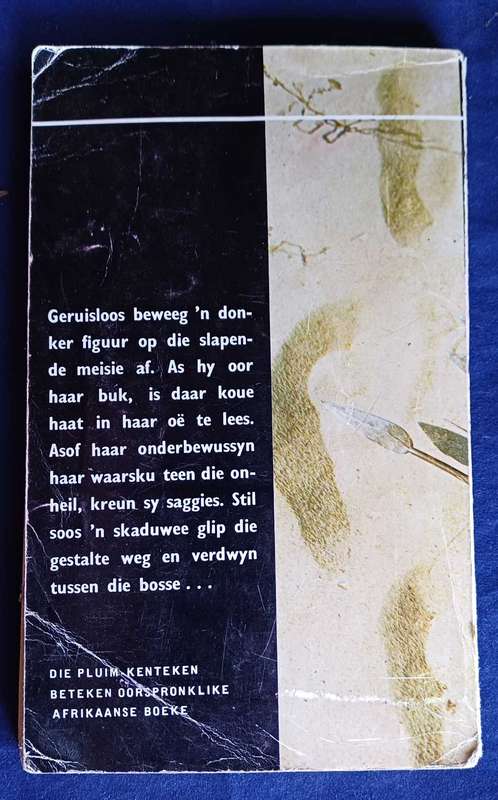 Geruisloos beweeg 'n don-
ker figuur op die slapen-
de meisie af. As hy oor
haar buk, is daar koue
haat in haar oë te lees.
Asof haar onderbewussyn
haar waarsku teen die on-
heil, kreun sy saggies. Stil
soos 'n skaduwee glip die
gestalte weg en verdwyn
tussen die bosse . . .
DIE PLUIM-KENTEKEN
BETEKEN OORSPRONKLIKE
AFRIKAANSE BOEKE